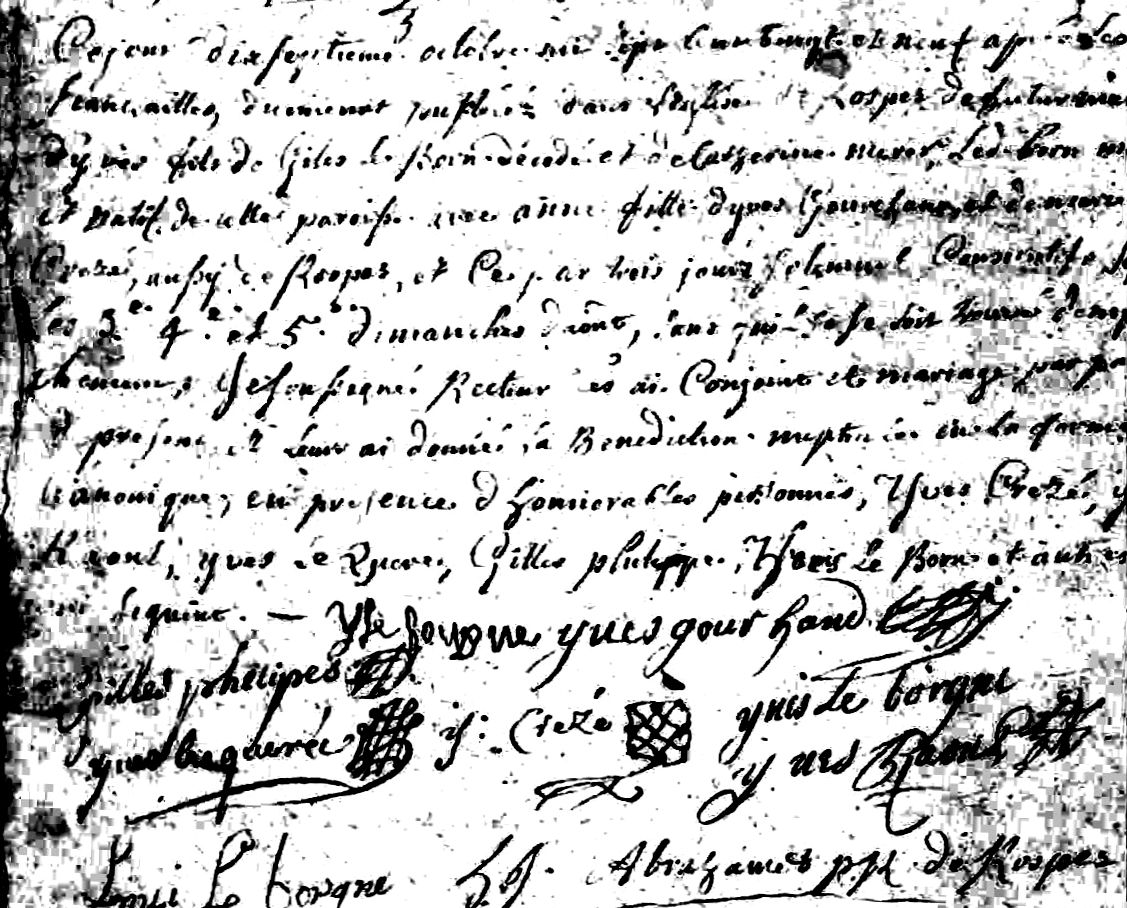 Cejour dixseptieme octobre mil sept cent vingt et neuf apres les
fiancailles, duement publiéz dans l'Eglise de Rospez de futur maria
d'yves fils de Giles Le Born décédé et de Catherine Led. born
et natif de cette paroisse avec anne fille d'yves Gourhand et de marie
Crezé, aussy de Rospez, et Ce par trois jours solemnel Consecutifs
les 3e 4e et 5e dimanches d'aout, sans qu'il se soit trouvé d'emp
chement, Je soussigné Recteur les ai Conjoint et mariage par pa
de present et leur ai donné la Benediction nuptiale en la forme
Canonique, en presence d'honnorables personnes, Yves Crezé, y
Raoul, yves Le Quere, Gilles phelippe, Yves Le Born et autres
qui signent. — Y Le borgne yves gourhand
gilles phelipes
yves Le querée y: Crezé yves Le borgne
yves Raoul
Le borgne Abrahames ptr de Rospez